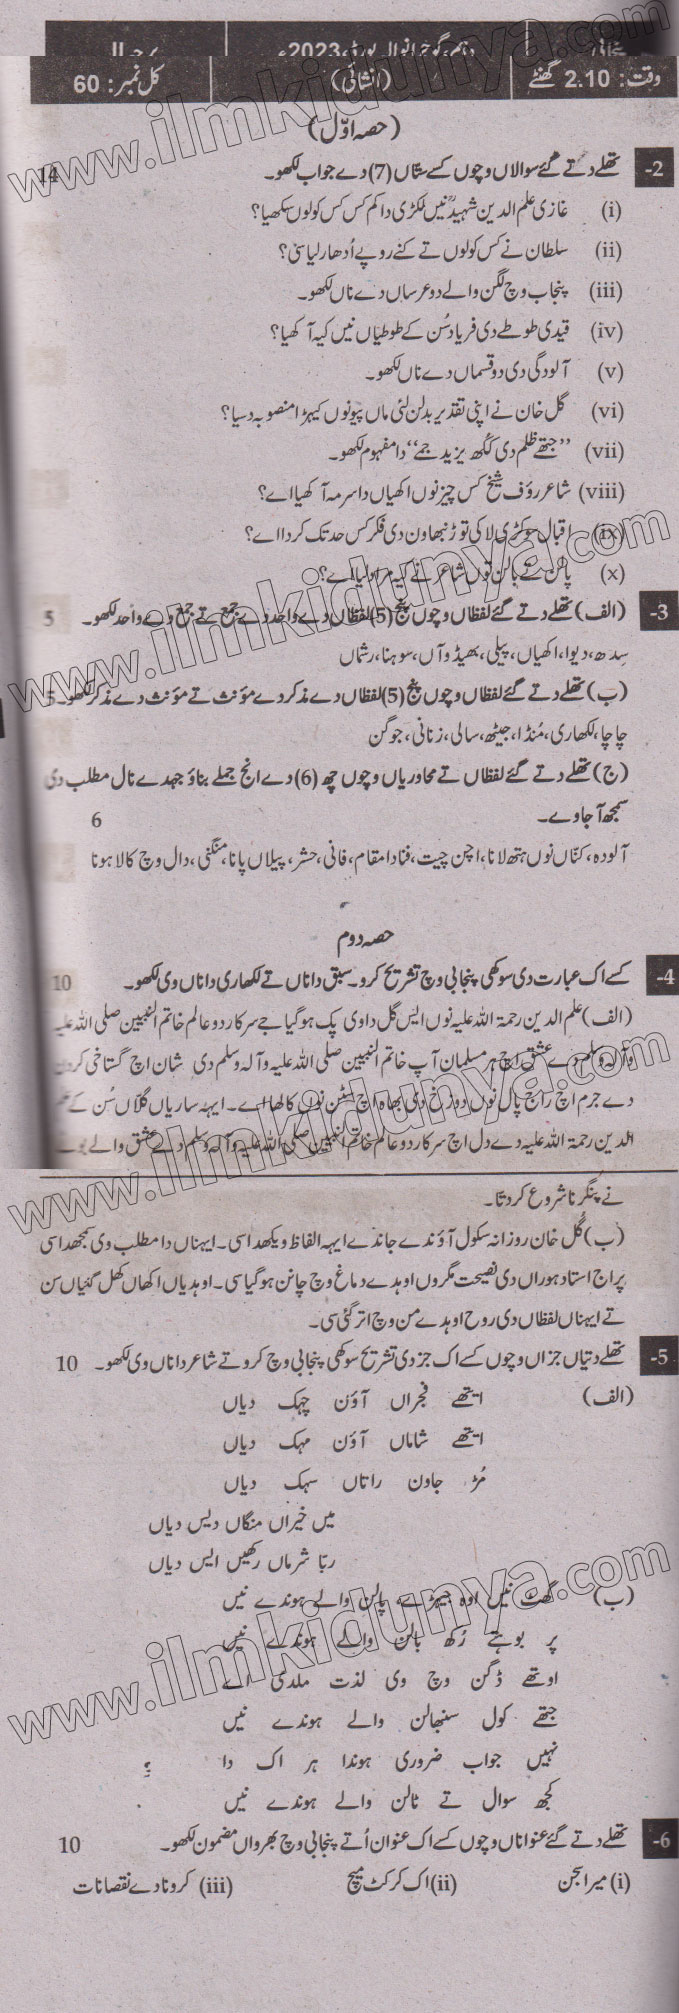 دہم، گوجرانوالہ بورڈ، 2023ء
وقت: 2.10 گھنٹے (انشائی) کل نمبر: 60
(حصہ اوّل)
2- تھلے دتے گئے سوالاں وچوں کسے ستّاں (7) دے جواب لکھو۔ 14
(i) غازی علم الدین شہیدؒ نیں لکڑی دا کم کس کس کولوں سکھیا؟
(ii) سلطان نے کس کولوں تے کنے روپے اُدھار لیا سی؟
(iii) پنجاب وچ لگن والے دو عرساں دے ناں لکھو۔
(iv) قیدی طوطے دی فریاد سُن کے طوطیاں نیں کیہ آکھیا؟
(v) آلودگی دی دو قسماں دے ناں لکھو۔
(vi) گل خان نے اپنی تقدیر بدلن لئی ماں پیو نوں کیہڑا منصوبہ دسیا؟
(vii) ”جتھے ظلم دی کُکھ یزید جمے“ دا مفہوم لکھو۔
(viii) شاعر رؤف شیخ کس چیز نوں اکھیاں دا سرمہ آکھیا اے؟
(ix) اقبال جوکڑی لا کی توڑ نبھاون دی فکر کس حد تک کردا اے؟
(x) پالن تے بالن توں شاعر نے کیہ مراد لیا اے؟
3- (الف) تھلے دتے گئے لفظاں وچوں پنج (5) لفظاں دے واحد دے جمع تے جمع دے واحد لکھو۔ 5
سِدھ، دیوا، اکھیاں، پیلی، بھیڈو آں، سوہنا، رشماں
(ب) تھلے دتے گئے لفظاں وچوں پنج (5) لفظاں دے مذکر دے مؤنث تے مؤنث دے مذکر لکھو۔ 5
چاچا، لکھاری، مُنڈا، جیٹھ، سالی، زنانی، جوگن
(ج) تھلے دتے گئے لفظاں تے محاوریاں وچوں چھ (6) دے انج جملے بناؤ جہدے نال مطلب دی
سمجھ آ جاوے۔ 6
آلودہ، کنّاں نوں ہتھ لانا، اچن چیت، فنا دا مقام، فانی، حشر، پیلاں پانا، منگنی، دال وچ کالا ہونا
حصہ دوم
4- کسے اک عبارت دی سوکھی پنجابی وچ تشریح کرو۔ سبق دا ناں تے لکھاری دا ناں وی لکھو۔ 10
(الف) علم الدین رحمۃ اللہ علیہ نوں ایس گل دا وی پک ہوگیا جے سرکار دو عالم خاتم النبیین صلی اللہ علیہ
وآلہ وسلم دے عشق اچ ہر مسلمان آپ خاتم النبیین صلی اللہ علیہ و آلہ وسلم دی شان اچ گستاخی کردن
دے جرم اچ راج پال نوں دوزخ دی بھاہ اچ سٹن نوں کالھا اے۔ ایہہ ساریاں گلاں سُن کے علم
الدین رحمۃ اللہ علیہ دے دل اچ سرکار دو عالم خاتم النبیین صلی اللہ علیہ وآلہ وسلم دے عشق والے بوٹے
نے پنگرنا شروع کر دتا۔
(ب) گُل خان روزانہ سکول آؤندے جاندے ایہہ الفاظ ویکھدا سی۔ ایہناں دا مطلب وی سمجھدا سی
پر اج استاد ہوراں دی نصیحت مگروں اوہدے دماغ وچ چانن ہوگیا سی۔ اوہدیاں اکھاں کھل گئیاں سن
تے ایہناں لفظاں دی روح اوہدے من وچ اتر گئی سی۔
5- تھلے دتیاں جزاں وچوں کسے اک جز دی تشریح سوکھی پنجابی وچ کرو تے شاعر دا ناں وی لکھو۔ 10
(الف) ایتھے فجراں آؤن چہک دیاں
ایتھے شاماں آؤن مہک دیاں
مُڑ جاون راتاں سہک دیاں
میں خیراں منگاں دیس دیاں
ربّا شرماں رکھیں ایس دیاں
(ب) گھٹ نیں اوہ جیہڑے، پالن والے ہوندے نیں
پر بوہتے رُکھ بالن والے ہوندے نیں
اوتھے ڈگن وچ وی لذت ملدی اے
جتھے کول سنبھالن والے ہوندے نیں
نہیں جواب ضروری ہوندا ہر اک دا ؟
کجھ سوال تے ٹالن والے ہوندے نیں۔
6- تھلے دتے گئے عنواناں وچوں کسے اک عنوان اُتے پنجابی وچ بھرواں مضمون لکھو۔ 10
(i) میرا بجن (ii) اک کرکٹ میچ (iii) کرونا دے نقصانات
www.ilmkidunya.com
www.ilmkidunya.com
www.ilmkidunya.com
www.ilmkidunya.com